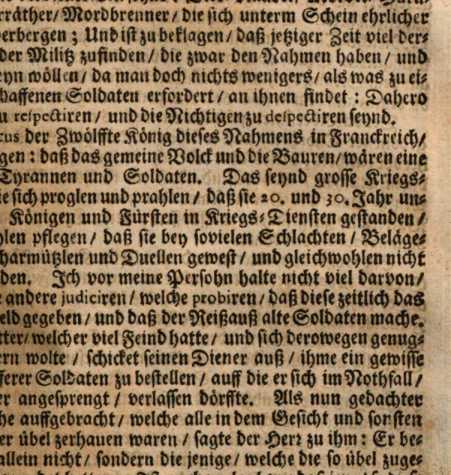 rräther/ Mordbrenner/ die sich unterm Schein ehrlicher
erbergen; Und ist zu beklagen/ daß jetziger Zeit viel der-
der Militz zufinden/ die zwar den Nahmen haben/ und
eyn wöllen/ da man doch nichts wenigers/ als was zu ei-
haffenen Soldaten erfordert/ an ihnen findet: Dahero
u respectiren/ und die Nichtigen zu despectiren seynd.
cus der Zwölffte König dieses Nahmens in Franckreich/
gen: daß das gemeine Volck und die Bauren/ wären eine
Tyrannen und Soldaten. Das seynd grosse Kriegs-
ie sich proglen und prahlen/ daß sie 20. und 30. Jahr un-
Königen und Fürsten in Kriegs-Diensten gestanden/
hlen pflegen/ daß sie bey sovielen Schlachten/ Beläge-
harmützlen und Duellen gewest/ und gleichwohlen nicht
den. Ich vor meine Persohn halte nicht viel darvon/
e andere judiciren/ welche probiren/ daß diese zeitlich das
eld gegeben/ und daß der Reißauß alte Soldaten mache.
tter/ welcher viel Feind hatte/ und sich derowegen genug-
ern wolte/ schicket seinen Diener auß/ ihme ein gewisse
fferer Soldaten zu bestellen/ auff die er sich im Nothfall/
er angesprengt/ verlassen dörffte. Als nun gedachter
he auffgebracht/ welche alle in dem Gesicht und sonsten
er übel zerhauen waren/ sagte der Herr zu ihm: Er be-
allein nicht/ sondern die jenige/ welche die so übel zuge-